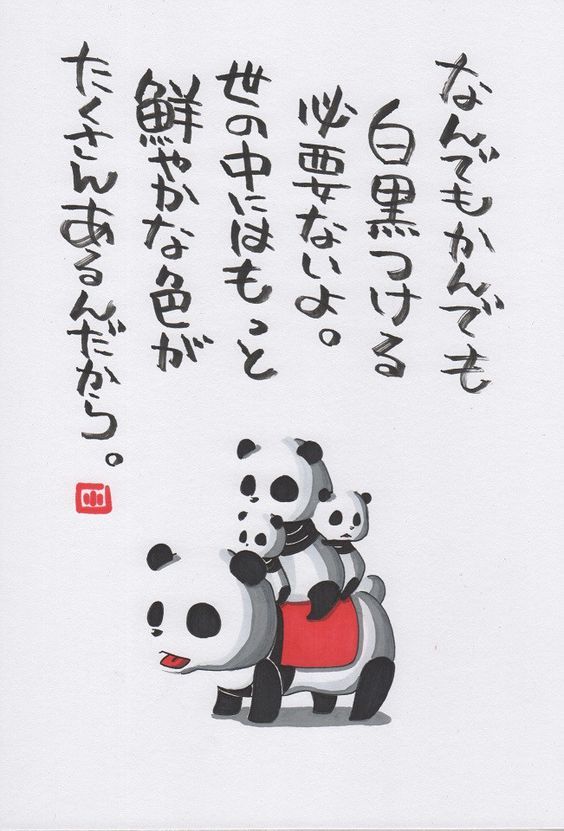 なんでもかんでも
白黒つける
必要ないよ。
世の中にはもっと
鮮やかな色が
たくさんあるんだから。